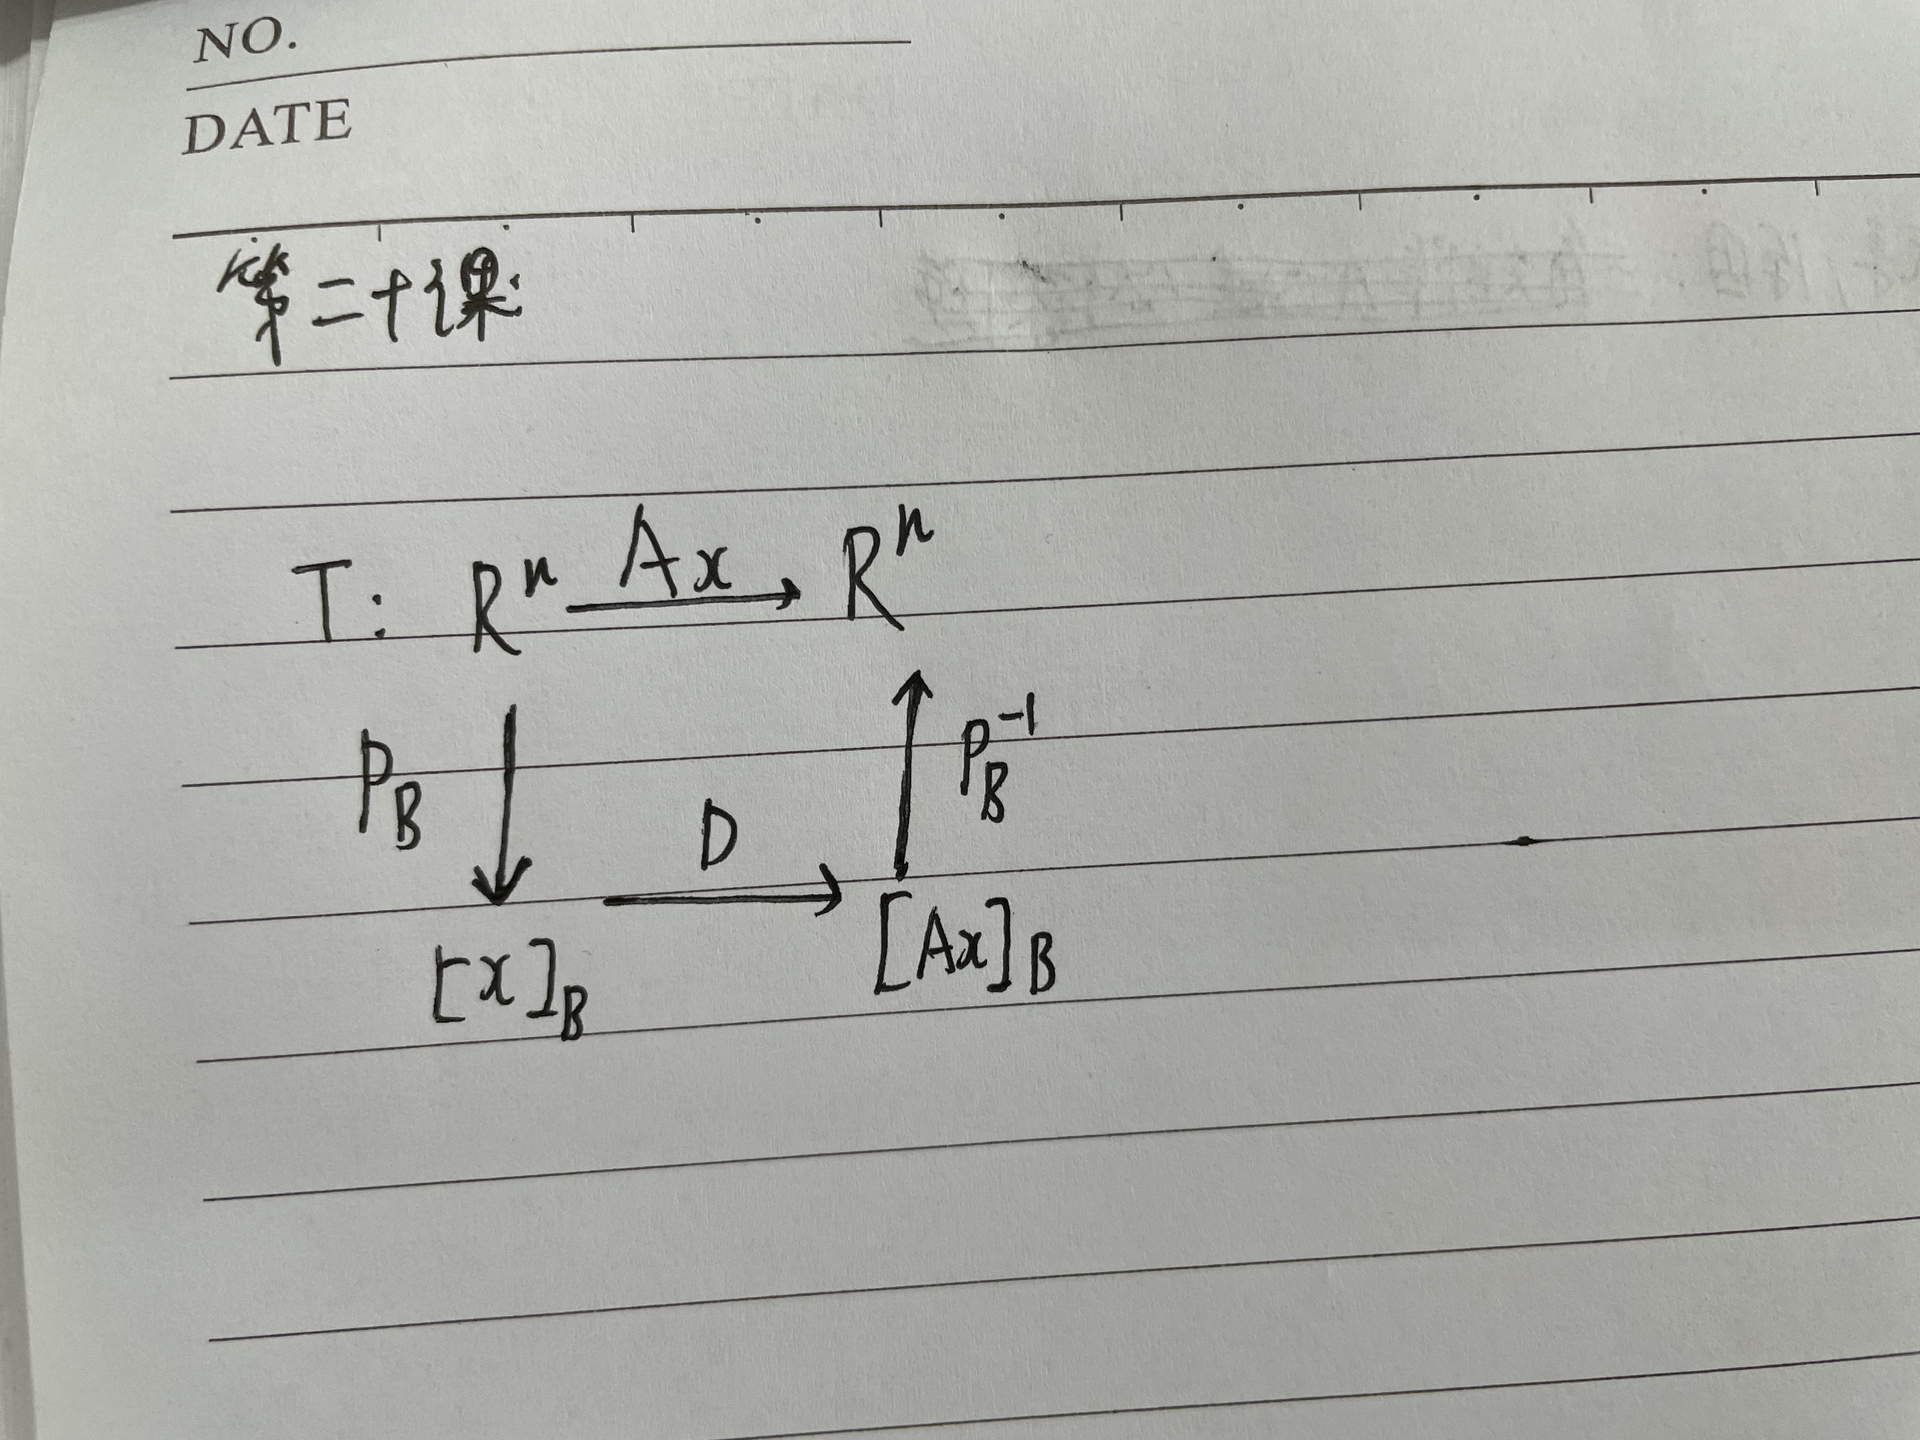 NO.
DATE
第二十课:
T: Rⁿ Ax→ Rⁿ
P_B ↓ D → ↑ P_B⁻¹
[x]_B [Ax]_B